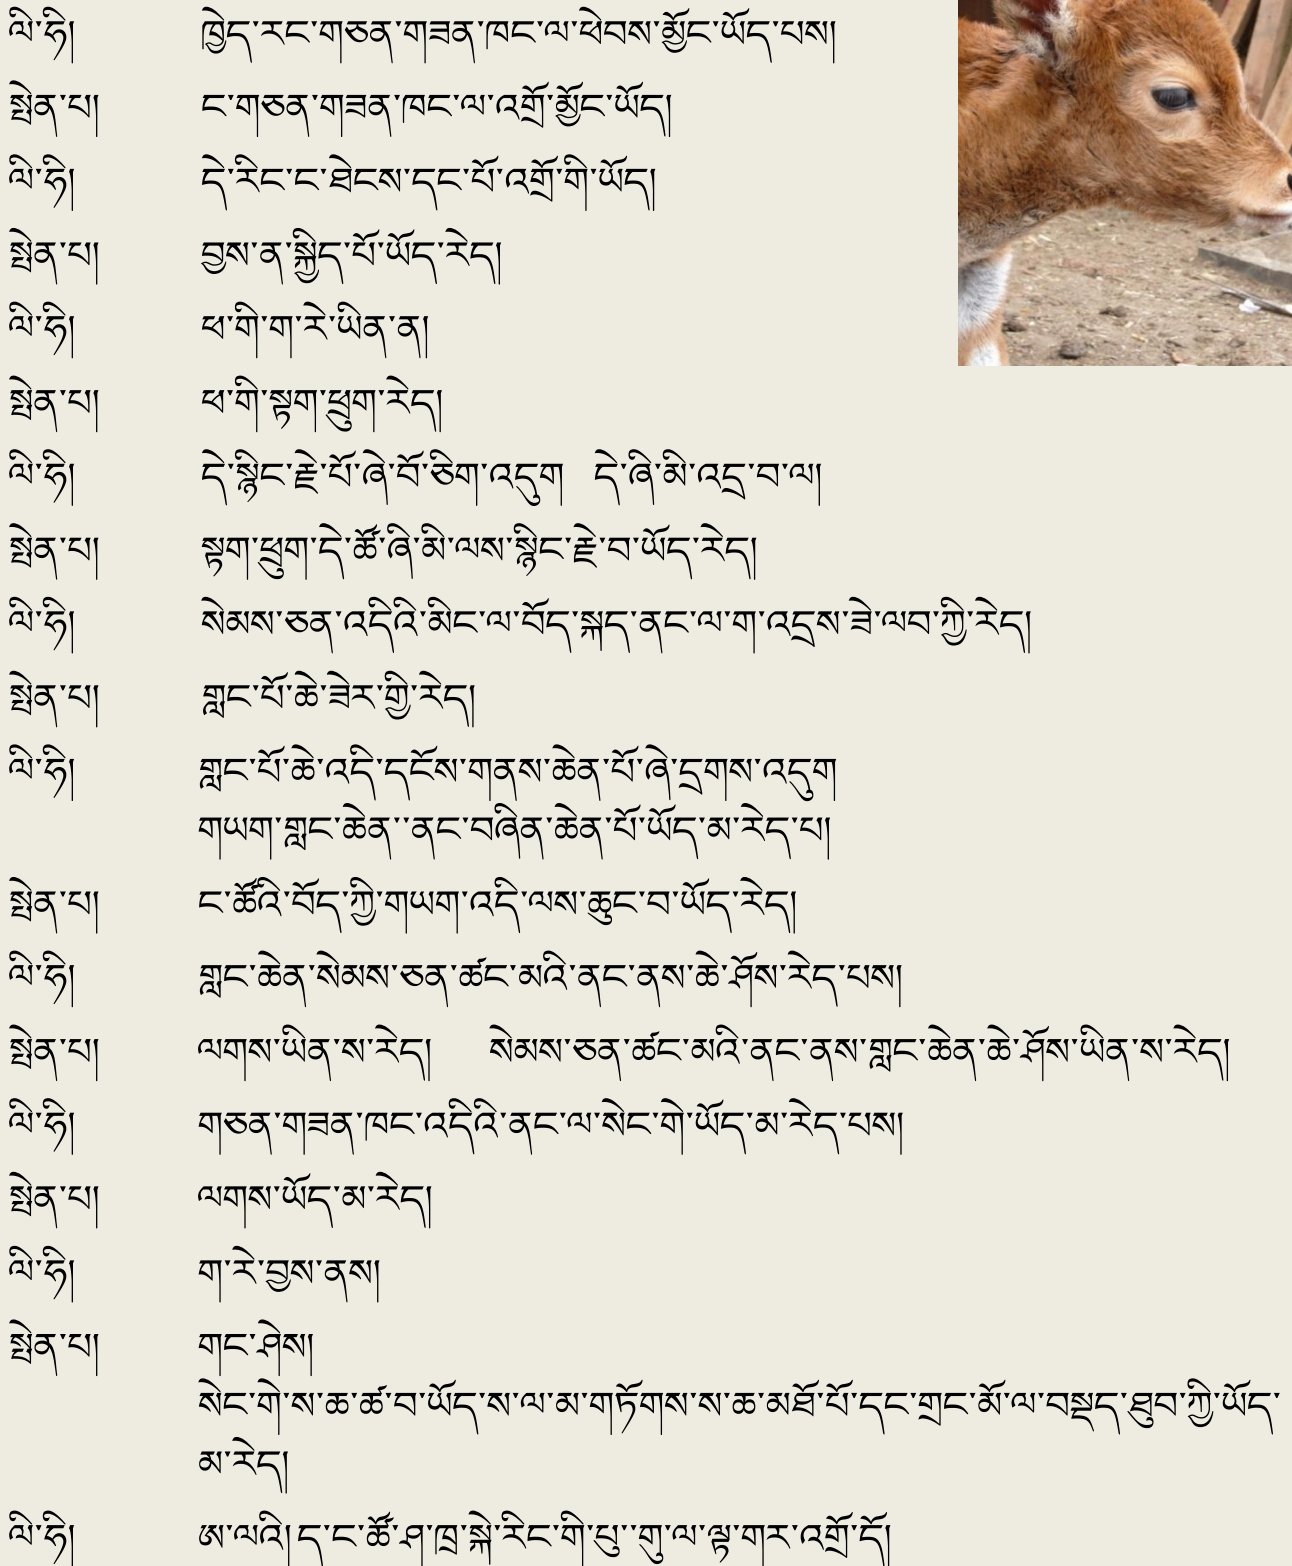 ལི་ཧི། ཁྱེད་རང་གཅན་གཟན་ཁང་ལ་ཕེབས་མྱོང་ཡོད་པས།
སྤེན་པ། ང་གཅན་གཟན་ཁང་ལ་འགྲོ་མྱོང་ཡོད།
ལི་ཧི། དེ་རིང་ང་ཐེངས་དང་པོ་འགྲོ་གི་ཡོད།
སྤེན་པ། བྱས་ན་སྐྱིད་པོ་ཡོད་རེད།
ལི་ཧི། ཕ་གི་ག་རེ་ཡིན་ན།
སྤེན་པ། ཕ་གི་སྟག་ཕྲུག་རེད།
ལི་ཧི། དེ་སྙིང་རྗེ་པོ་ཞེ་བོ་ཅིག་འདུག དེ་ཞི་མི་འདྲ་བ་ལ།
སྤེན་པ། སྟག་ཕྲུག་དེ་ཚོ་ཞི་མི་ལས་སྙིང་རྗེ་བ་ཡོད་རེད།
ལི་ཧི། སེམས་ཅན་འདིའི་མིང་ལ་བོད་སྐད་ནང་ལ་ག་འདྲས་ཟེ་ལབ་ཀྱི་རེད།
སྤེན་པ། གླང་པོ་ཆེ་ཟེར་གྱི་རེད།
ལི་ཧི། གླང་པོ་ཆེ་འདི་དངོས་གནས་ཆེན་པོ་ཞེ་དྲགས་འདུག
གཡག་གླང་ཆེན་་ནང་བཞིན་ཆེན་པོ་ཡོད་མ་རེད་པ།
སྤེན་པ། ང་ཚོའི་བོད་ཀྱི་གཡག་འདི་ལས་ཆུང་བ་ཡོད་རེད།
ལི་ཧི། གླང་ཆེན་སེམས་ཅན་ཚང་མའི་ནང་ནས་ཆེ་ཤོས་རེད་པས།
སྤེན་པ། ལགས་ཡིན་ས་རེད། སེམས་ཅན་ཚང་མའི་ནང་ནས་གླང་ཆེན་ཆེ་ཤོས་ཡིན་ས་རེད།
ལི་ཧི། གཅན་གཟན་ཁང་འདིའི་ནང་ལ་སེང་གེ་ཡོད་མ་རེད་པས།
སྤེན་པ། ལགས་ཡོད་མ་རེད།
ལི་ཧི། ག་རེ་བྱས་ནས།
སྤེན་པ། གང་ཤེས།
སེང་གེ་ས་ཆ་ཚ་བ་ཡོད་ས་ལ་མ་གཏོགས་ས་ཆ་མཐོ་པོ་དང་གྲང་མོ་ལ་བསྡད་ཐུབ་ཀྱི་ཡོད་
མ་རེད།
ལི་ཧི། ཨ་ལའི། ད་ང་ཚོ་ཤ་ཁྲ་སྐེ་རིང་གི་ཕུ་་གུ་ལ་ལྟ་གར་འགྲོ་དོ།